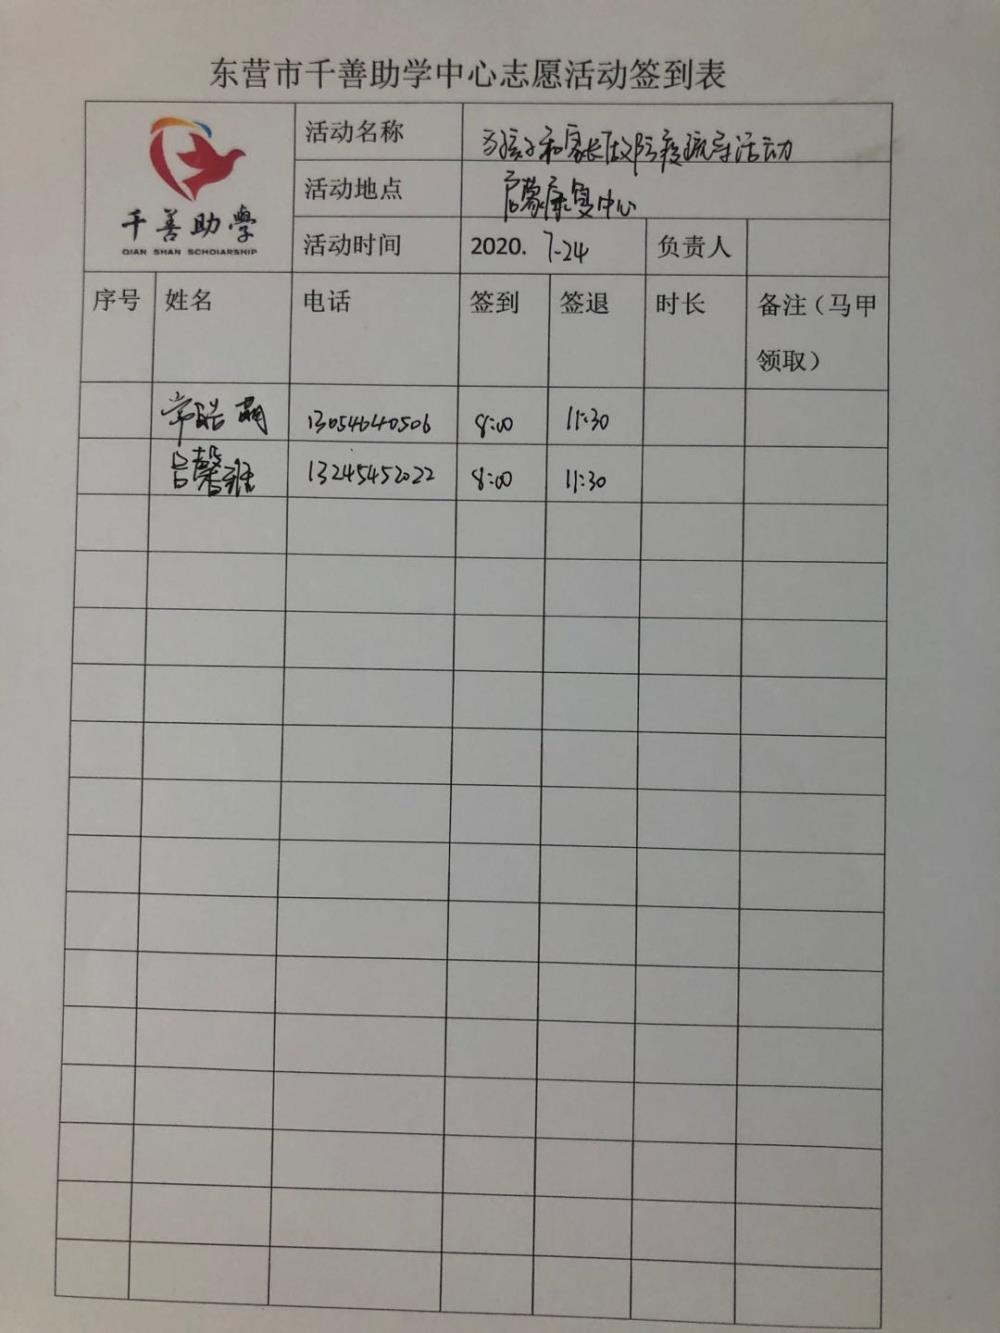 东营市千善助学中心志愿活动签到表
千善助學
QIAN SHAN SCHOIARSHIP
活动名称 为孩子和家长做防疫疏导活动
活动地点 启蒙康复中心
活动时间 2020. 7-24 负责人
序号 姓名 电话 签到 签退 时长 备注（马甲领取）
常皓萌 13054640506 8:00 11:30
吕馨班 13245452022 8:00 11:30